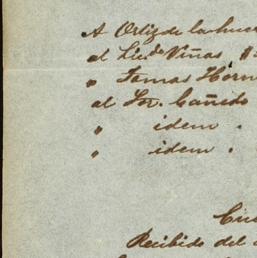 A Ortiz de la hue
al Lic.do Viñas
" Tomas Horn
al Sor. Cañedo
" idem .
" idem .
Cu
Recibido del